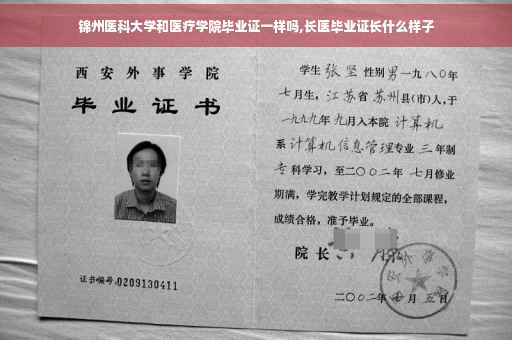 锦州医科大学和医疗学院毕业证一样吗,长医毕业证长什么样子
西安外事学院
毕业证书
证书编号:0209130411
学生 张坚 性别 男 一九八〇年
七月生, 江苏省 苏州县(市)人,于
一九九九年 九月入本院 计算机
系 计算机信息管理专业 三 年制
专科学习,至二〇〇二年 七月修业
期满,学完教学计划规定的全部课程,
成绩合格,准予毕业。
院长
二〇〇二年 月五日